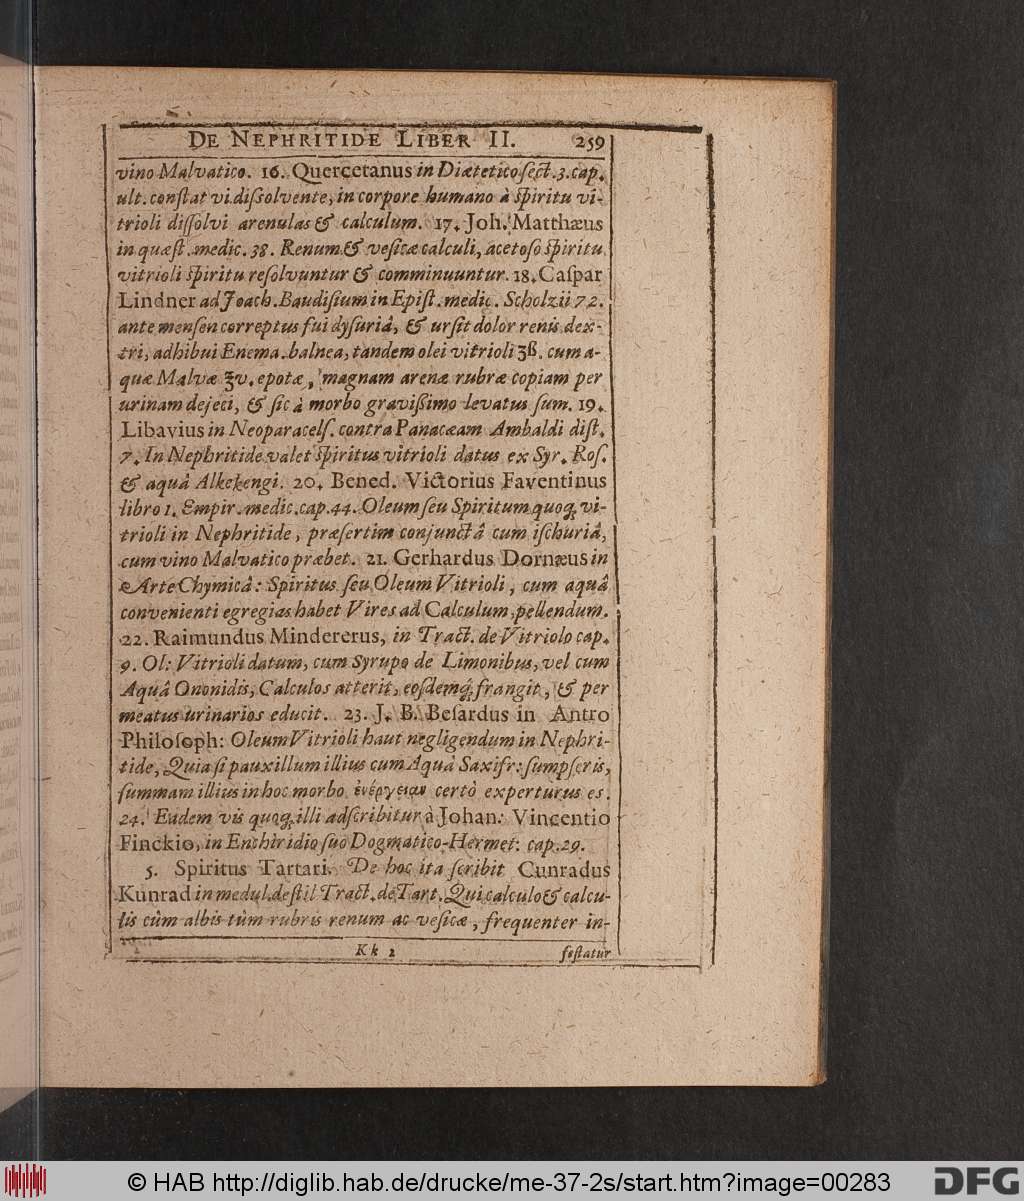 DE NEPHRITIDE LIBER II. 259
vino Malvatico. 16. Quercetanus in Diætetico ſect. 3. cap.
ult. conſtat vi diſsolvente, in corpore humano à ſpiritu vi-
trioli diſſolvi arenulas & calculum. 17. Joh. Matthæus
in quæſt. medic. 38. Renum & veſicæ calculi, acetoſo ſpiritu
vitrioli ſpiritu reſolvuntur & comminuuntur. 18. Caſpar
Lindner ad Joach. Baudiſium in Epiſt. medic. Scholzii 72.
ante menſen correptus fui dyſuriâ, & urſit dolor renis dex-
tri, adhibui Enema. balnea, tandem olei vitrioli ʒß. cum a-
quæ Malvæ ʒv. epotæ, magnam arenæ rubræ copiam per
urinam dejeci, & ſic à morbo graviſſimo levatus ſum. 19.
Libavius in Neoparacelſ. contra Panacæam Ambaldi diſt.
7. In Nephritide valet ſpiritus vitrioli datus ex Syr. Roſ.
& aquâ Alkekengi. 20. Bened. Victorius Faventinus
libro 1. Empir. medic. cap. 44. Oleum ſeu Spiritum quoq; vi-
trioli in Nephritide, præſertim conjunctâ cum iſchuriâ,
cum vino Malvatico præbet. 21. Gerhardus Dornæus in
Arte Chymicâ: Spiritus ſeu Oleum Vitrioli, cum aquâ
convenienti egregias habet Vires ad Calculum pellendum.
22. Raimundus Mindererus, in Tract. de Vitriolo cap.
9. Ol: Vitrioli datum, cum Syrupo de Limonibus, vel cum
Aquâ Ononidis, Calculos atterit, eoſdemq; frangit, & per
meatus urinarios educit. 23. J. B. Beſardus in Antro
Philoſoph: Oleum Vitrioli haut negligendum in Nephri-
tide, Quia ſi pauxillum illius cum Aquâ Saxifr: ſumpſeris,
ſummam illius in hoc morbo ἐνέργειαν certò experturus es.
24. Eadem vis quoq; illi adſcribitur à Johan: Vincentio
Finckio, in Enchiridio ſuo Dogmatico-Hermet: cap. 29.
5. Spiritus Tartari. De hoc ita ſcribit Cunradus
Kunrad in medul. deſtil Tract. de Tart. Qui calculo & calcu-
lis cùm albis tùm rubris renum ac veſicæ, frequenter in-
K k 2 feſtatur
© HAB http://diglib.hab.de/drucke/me-37-2s/start.htm?image=00283
DFG